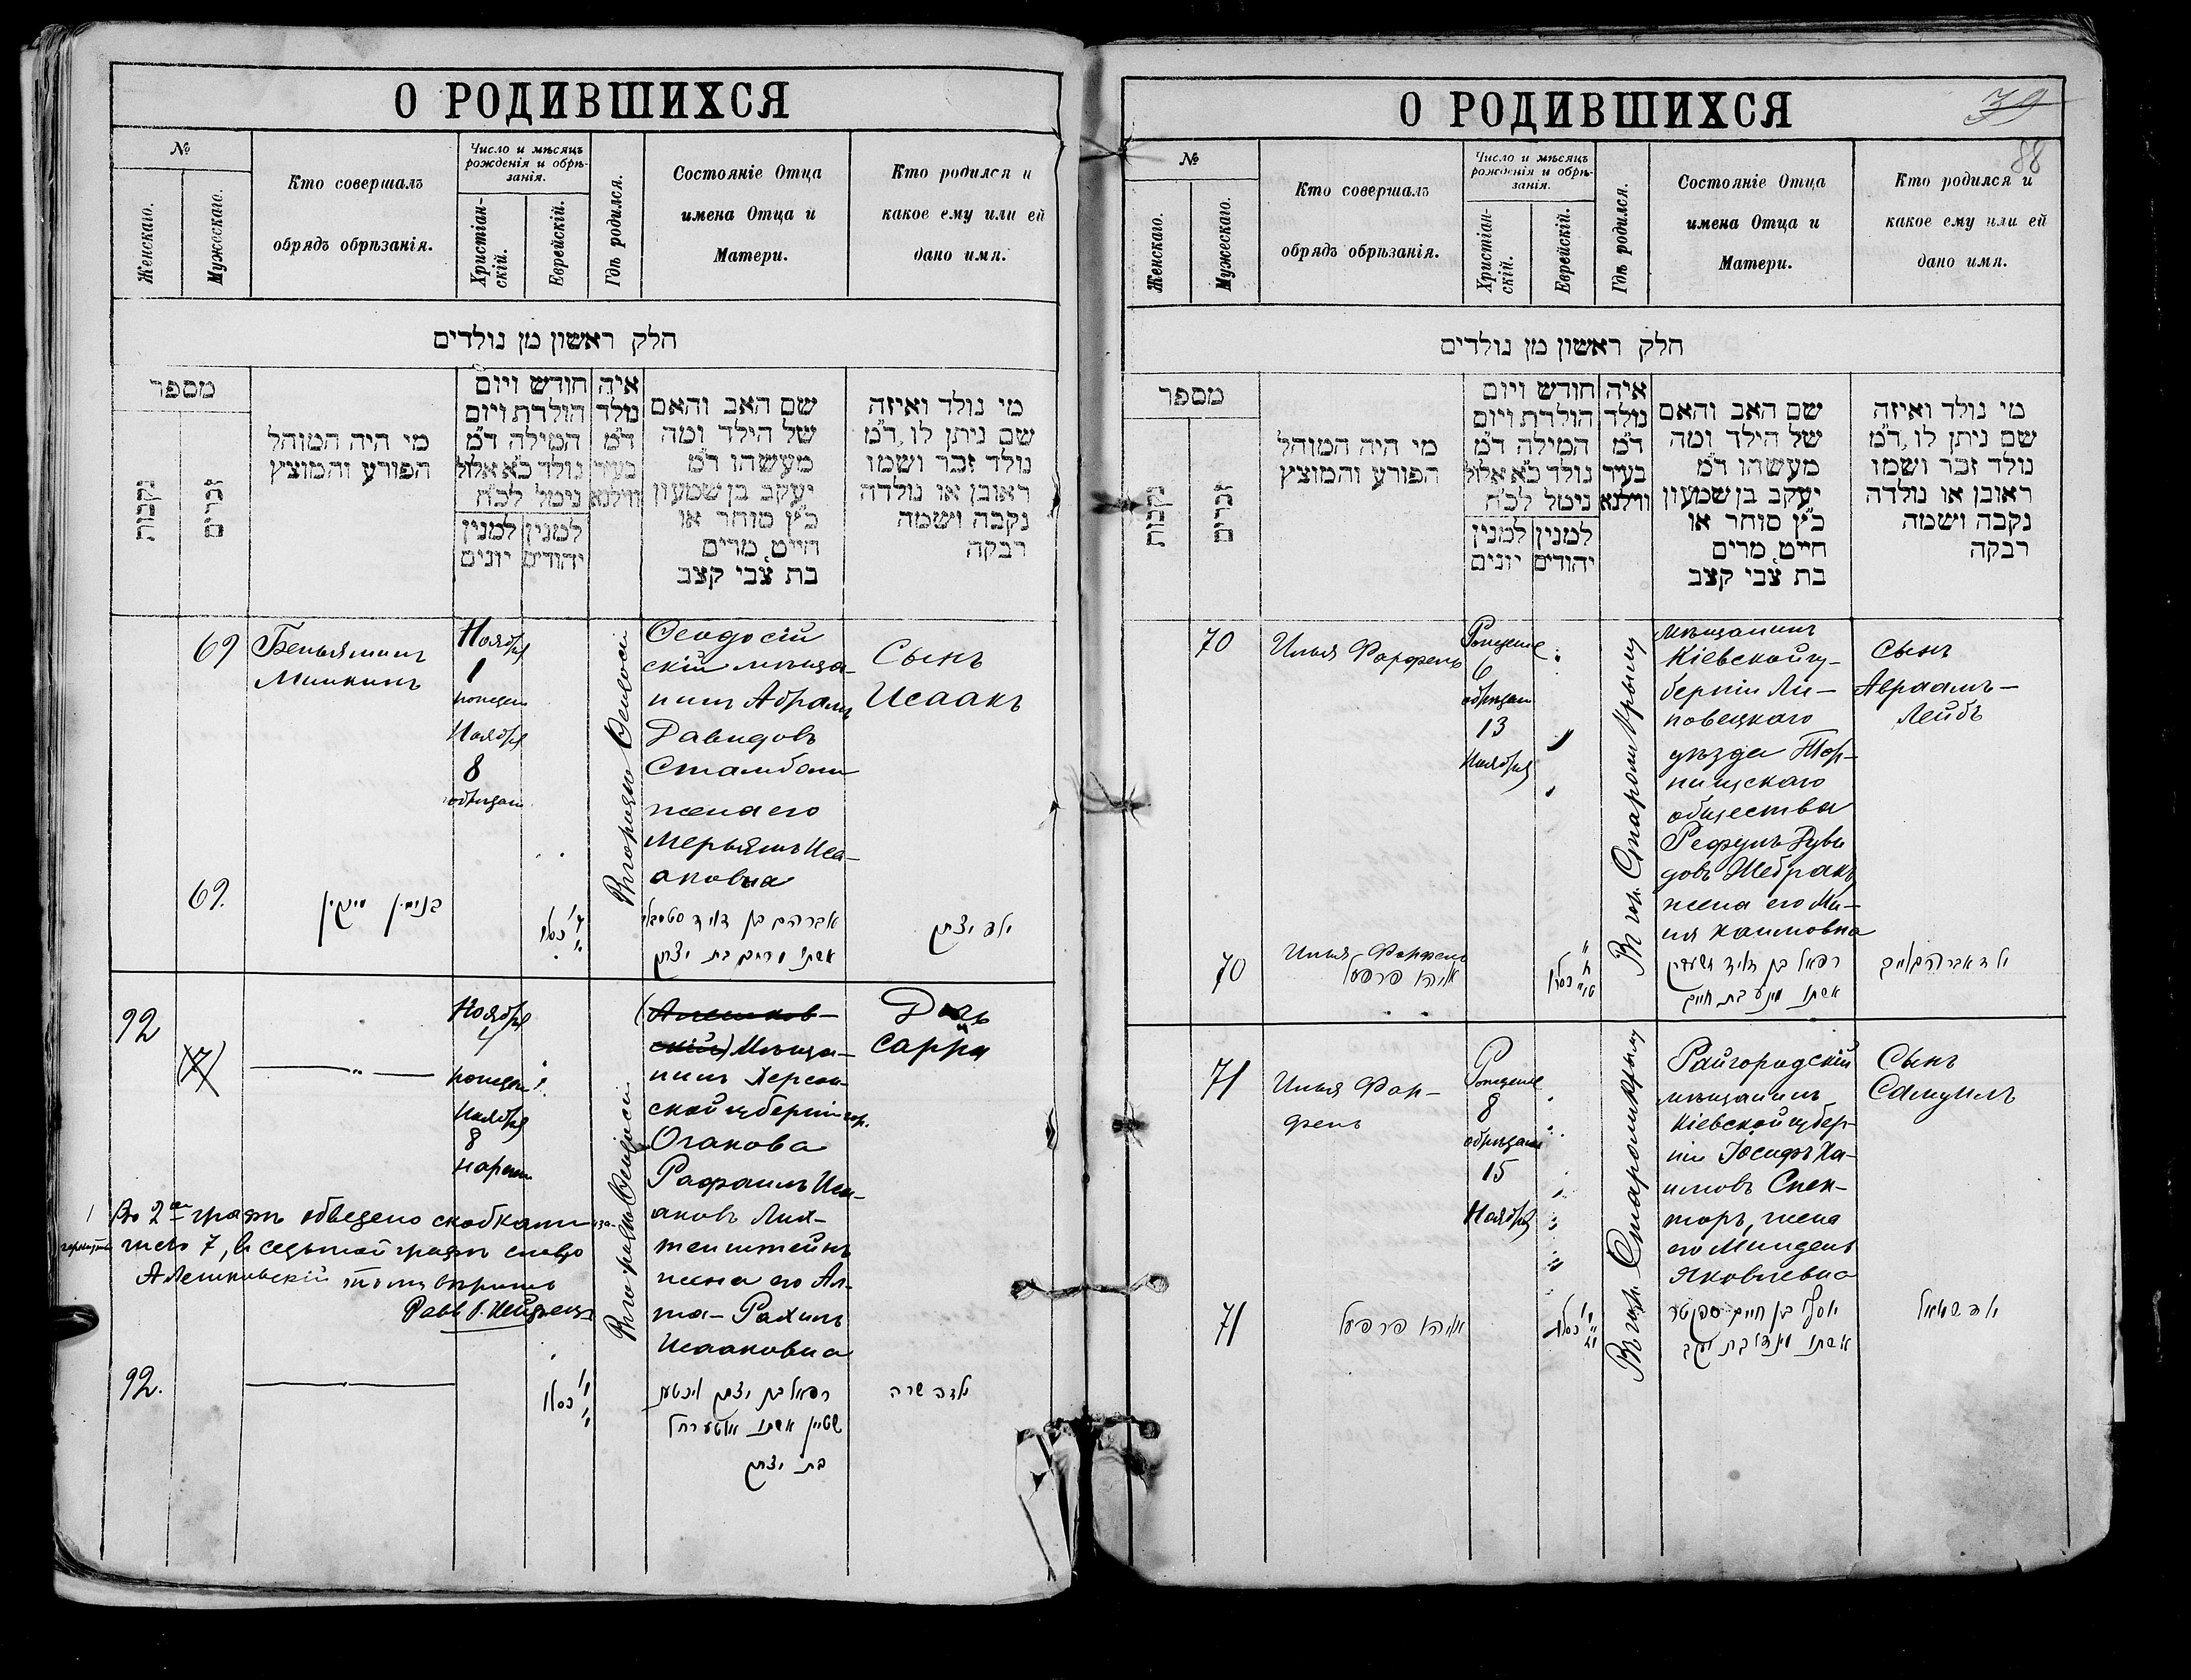 О РОДИВШИХСЯ
№
Женскаго.
Мужескаго.
Кто совершалъ
обрядъ обрѣзанія.
Число и мѣсяцъ
рожденія и обрѣ-
занія.
Христіан-
скій.
Еврейскій.
Гдѣ родился.
Состояніе Отца
имена Отца и
Матери.
Кто родился и
какое ему или ей
дано имя.
חלק ראשון מן נולדים
מספר
נקבות
זכרים
מי היה המוהל
הפורע והמוצץ
חודש ויום
הולדת ויום
המילה ד״מ
נולד כ״א אלול
נימל לכ״ח
למנין יהודים
למנין יונים
איה
נולד
ד״מ
בעיר
ווילנא
שם האב והאם
של הילד ומה
מעשהו ד״מ
יעקב בן שמעון
כ״ץ סוחר או
חייט, מרים
בת צבי קצב
מי נולד ואיזה
שם ניתן לו, ד״מ
נולד זכר ושמו
ראובן או נולדה
נקבה ושמה
רבקה
69
Беньяминъ
Минкинъ
Ноября
1
Ноября
8
Въ городѣ Ѳеодосіи
Ѳеодосій
скій мѣща-
нинъ Абрамъ
Давидовъ
Стамболи
жена его
Мерьямъ Иса-
аковна
Сынъ
Исаакъ
69.
בנימין מינקין
כסלו
אברהם בן דוד
אשתו מרים בת יצחק
ילד יצחק
92
(7)
Ноября
4
Ноября
8
Въ городѣ Ѳеодосіи
(Алешков-
скій) Мѣща-
нинъ Херсон-
ской губерніи гор.
Очакова
Рафаилъ Иса-
аковъ Лих-
тенштейнъ
жена его Ал-
та-Рахиль
Исааковна
Дочь
Сарра
Во 2ой графѣ обведено скобками
число 7, въ седьмой графѣ слово
Алешковскій
92.
כסלו
רפאל בן יצחק ליכטענ
שטיין אשתו אלטע רחל
בת יצחק
ילדה שרה
О РОДИВШИХСЯ
39
88
№
Женскаго.
Мужескаго.
Кто совершалъ
обрядъ обрѣзанія.
Число и мѣсяцъ
рожденія и обрѣ-
занія.
Христіан-
скій.
Еврейскій.
Гдѣ родился.
Состояніе Отца
имена Отца и
Матери.
Кто родился и
какое ему или ей
дано имя.
חלק ראשון מן נולדים
מספר
נקבות
זכרים
מי היה המוהל
הפורע והמוצץ
חודש ויום
הולדת ויום
המילה ד״מ
נולד כ״א אלול
נימל לכ״ח
למנין יהודים
למנין יונים
איה
נולד
ד״מ
בעיר
ווילנא
שם האב והאם
של הילד ומה
מעשהו ד״מ
יעקב בן שמעון
כ״ץ סוחר או
חייט, מרים
בת צבי קצב
מי נולד ואיזה
שם ניתן לו, ד״מ
נולד זכר ושמו
ראובן או נולדה
נקבה ושמה
רבקה
70
Илья Фарфель
6
13
Ноября
Въ гор. Старомъ Крыму
мѣщанинъ
Кіевской гу-
берніи Ли-
повецкаго
уѣзда
общества
жена его Ми-
ня Хаимовна
Сынъ
Авраамъ-
Лейбъ
70
Илья Фарфель
אליהו פרפעל
כסלו
רפאל בן דוד
אשתו מינע בת חיים
ילד אברהם לייב
71
Илья Фар-
фель
8
15
Ноября
Въ гор. Старомъ Крыму
Райгородскій
мѣщанинъ
Кіевской губер-
ніи Іосифъ Ха-
имовъ Спек-
торъ, жена
его Миндель
Яковлевна
Сынъ
Самуилъ
71
אליהו פרפעל
כסלו
יוסף בן חיים ספקטר
אשתו מינדל בת יעקב
ילד שמואל